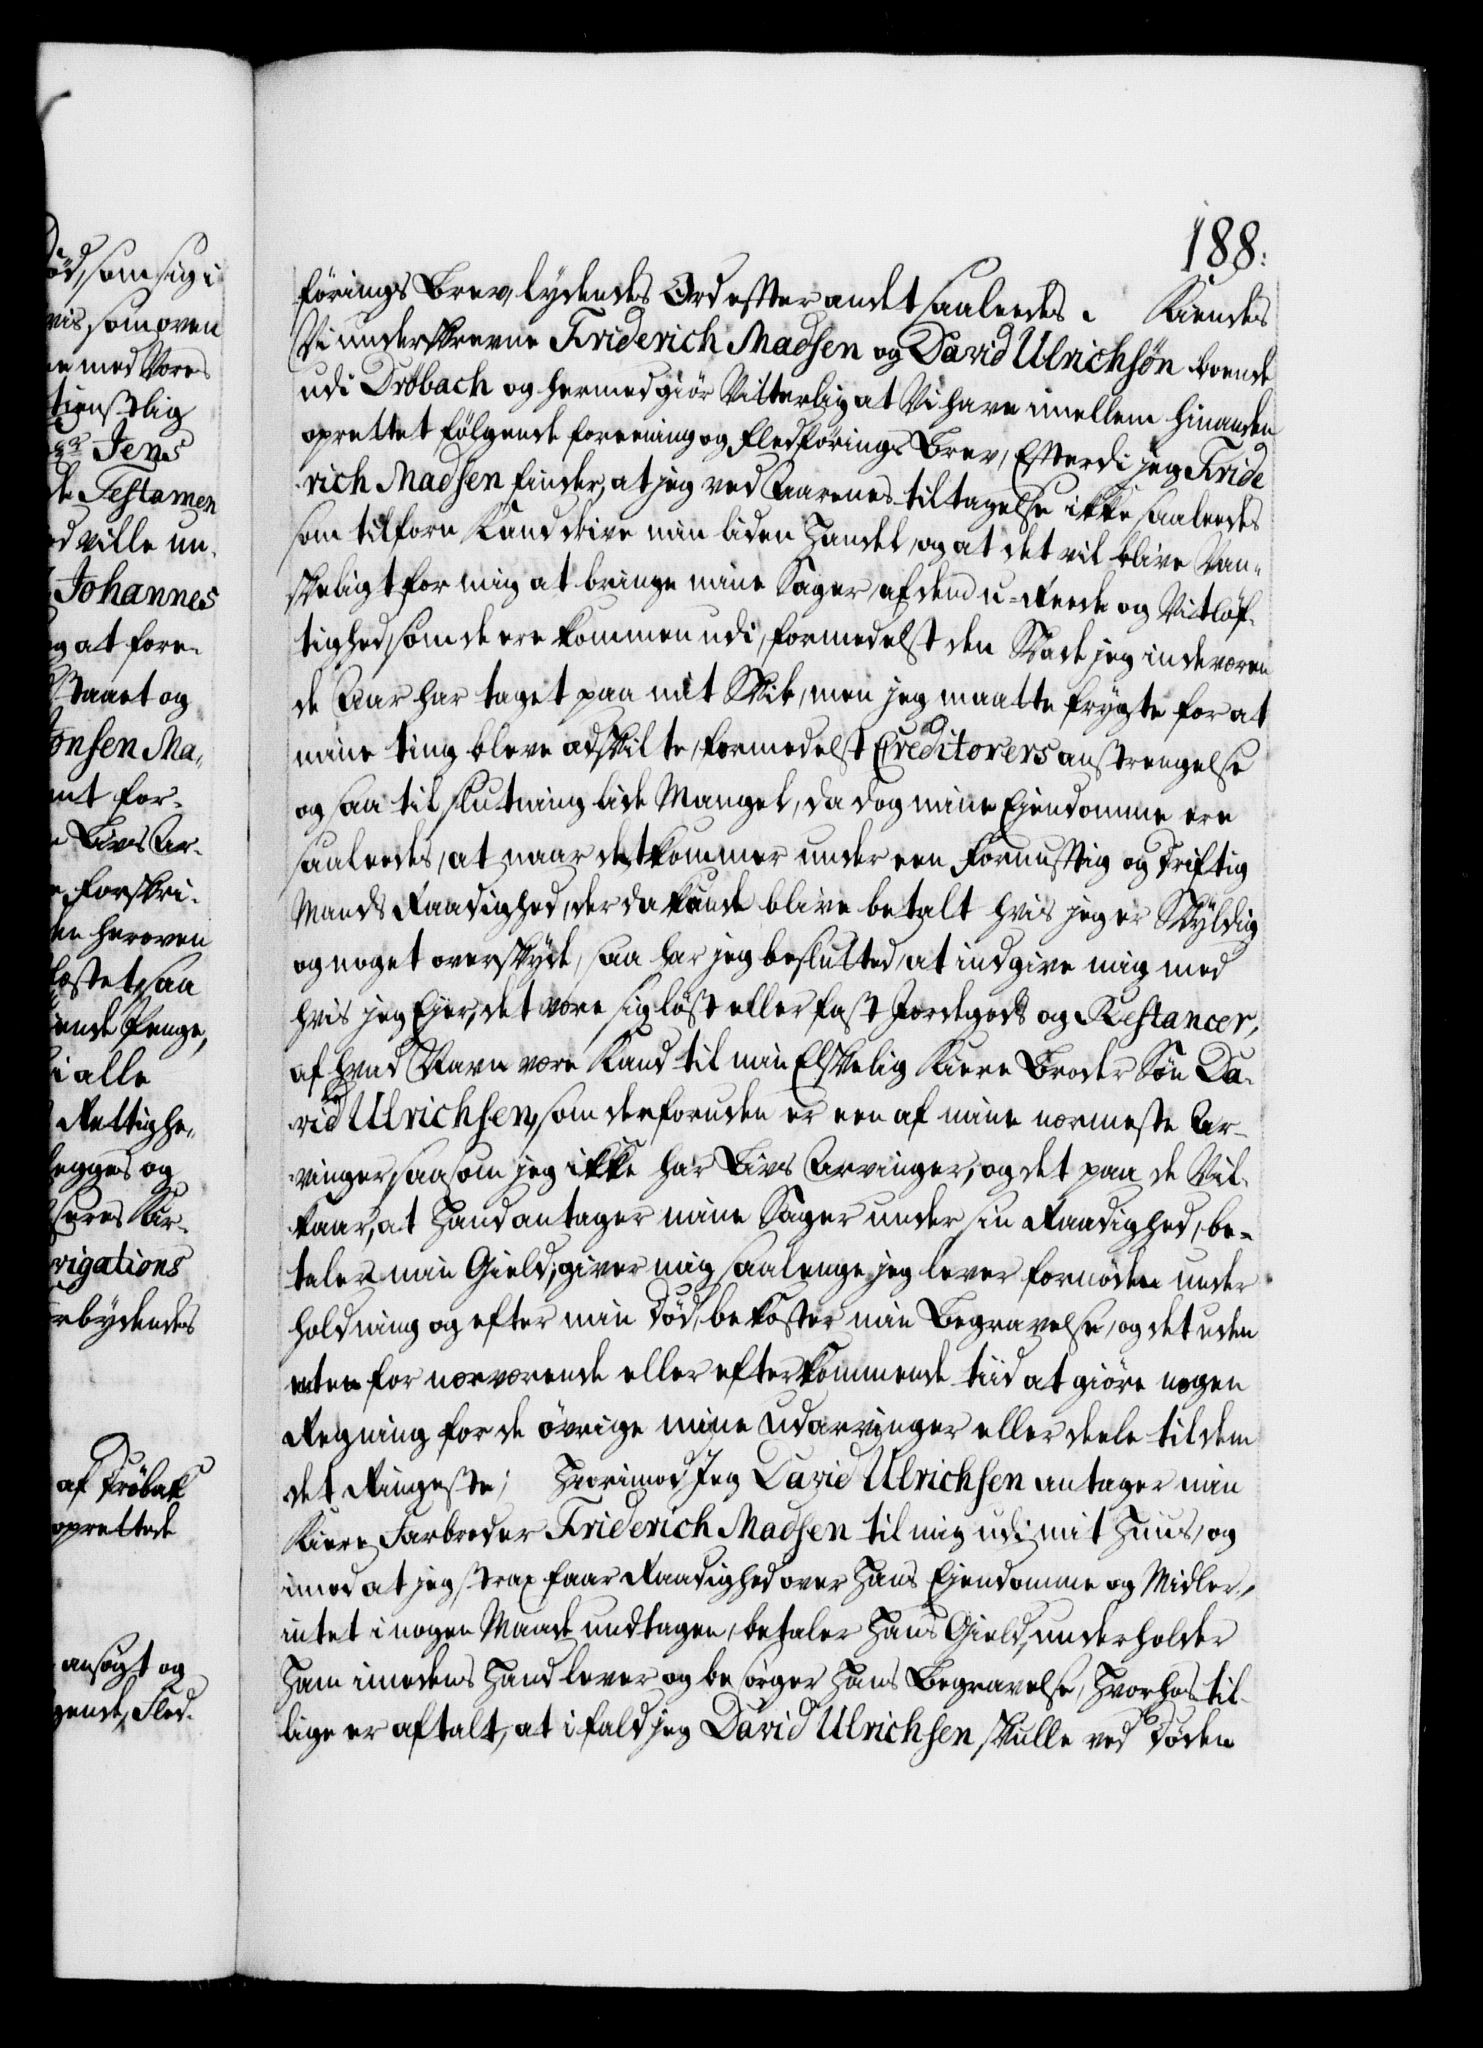 188.
förings Brev, lydendes Ord effter andet saaleedes. Kiendes
Vi underskrevne Friderich Madsen og David Ulrichsøn boende
udi Drøbach og hermed giör Vitterlig at Vi have imellem hinanden
oprettet fölgende foreening og fledförings Brev, Efterdi jeg Fride
rich Madsen finder, at jeg ved Aarenes tiltagelse ikke saaleedes
som tilforn Kand drive min liden Handel, og at det vil blive Van-
skeligt for mig at bringe mine Sager af dend u-Reede og Vitlöf-
tighed, som de ere kommen udi, formedelst den Skade jeg indeværen
de Aar har taget paa mit Skib, men jeg maatte frygte for at
mine ting bleve adskilte, formedelst Creditorers anstrengelse
og saa til slutning lide Mangel, da dog mine Ejendomme ere
saaleedes, at naar det kommer under een fornufftig og driftig
Mands Raadighed, der da kunde blive betalt hvis jeg er Skyldig
og noget overskyde, saa har jeg beslutted, at indgive mig med
hvis jeg Ejer, det være sig löst eller fast Jordegods og Restancer,
af hvad Navn være Kand til min Elskelig Kiere Broder Sön Da-
vid Ulrichsen, som desforuden er een af mine nærmeste Ar-
vinger, saasom jeg ikke har Livs Arvinger, og det paa de Vil-
kaar, at Hand antager mine Sager under sin Raadighed, be-
taler min Gield, giver mig saalenge jeg lever fornöden under
holdning og efter min Död, bekoster min Begravelse, og det uden
enten for nærværende eller efterkommende tiid at giöre nogen
Regning for de övrige mine Udarvinger eller deele til dem
det Ringeste; Hvorimod Jeg David Ulrichsen antager min
Kiere Farbroder Friderich Madsen til mig udi mit Huus, og
imod at jeg strax faar Raadighed over Hans Ejendomme og Midler,
intet i nogen Maade undtagen, betaler Hans Gield, underholder
Ham imedens Hand lever og besörger Hans Begravelse, Hvorhos til-
lige er aftalt, at ifald jeg David Ulrichsen skulle ved Döden